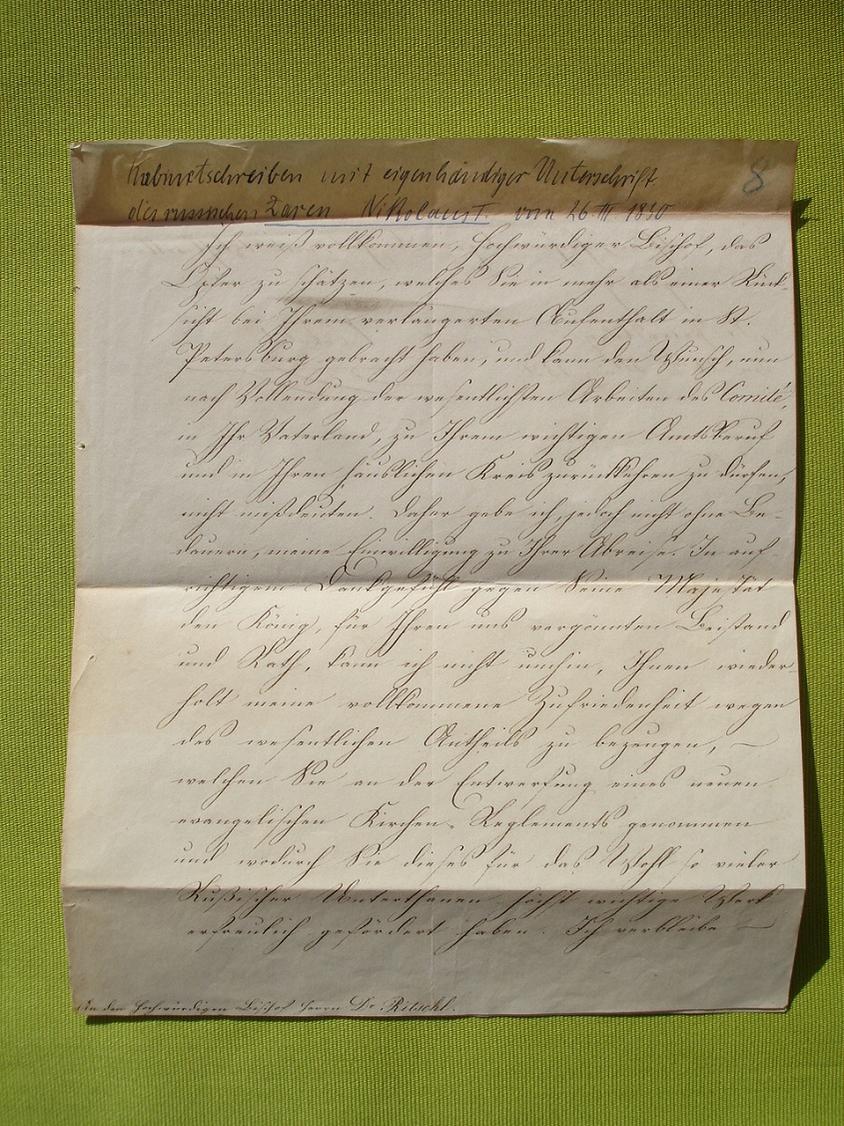 Kabinetschreiben mit eigenhändiger Unterschrift
8
des russischen Zaren Nikolaus I. vom 26 III 1830
Ich weiß vollkommen, Hochwürdiger Bischof, das
Opfer zu schätzen, welches Sie in mehr als einer Rück-
sicht bei Ihrem verlängerten Aufenthalt in St.
Petersburg gebracht haben, und kann den Wunsch, nun
nach Vollendung der wesentlichsten Arbeiten des Comité,
in Ihr Vaterland, zu Ihrem wichtigen Amtsberuf
und in Ihren häuslichen Kreis zurückkehren zu dürfen,
nicht mißdeuten. Daher gebe ich, jedoch nicht ohne Be-
dauern, meine Einwilligung zu Ihrer Abreise. In auf-
richtigem Dankgefühl gegen Seine Majestät
den König, für Ihren uns vergönnten Beistand
und Rath, kann ich nicht umhin, Ihnen wieder-
holt meine vollkommene Zufriedenheit wegen
des wesentlichen Antheils zu bezeugen, —
welchen Sie an der Entwerfung eines neuen
evangelischen Kirchen-Reglements genommen
und wodurch Sie dieses für das Wohl so vieler
Rußischer Unterthanen höchst wichtige Werk
erfreulich gefördert haben. Ich verbleibe —
An den Hochwürdigen Bischof Herrn Dr Ritschl.